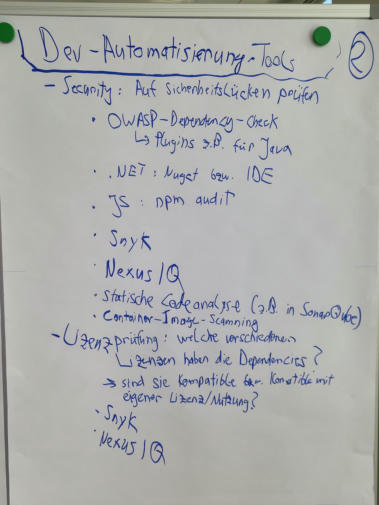 Dev-Automatisierung-Tools
2
- Security: Auf Sicherheitslücken prüfen
• OWASP-Dependency-Check
↳ Plugins z.B. für Java
• .NET: Nuget bzw. IDE
• JS: npm audit
• Snyk
• Nexus IQ
• statische Codeanalyse (z.B. in SonarQube)
• Container-Image-Scanning
- Lizenzprüfung: welche verschiedenen
Lizenzen haben die Dependencies?
→ sind sie kompatible bzw. mit
eigener Lizenz/Nutzung?
• Snyk
• Nexus IQ